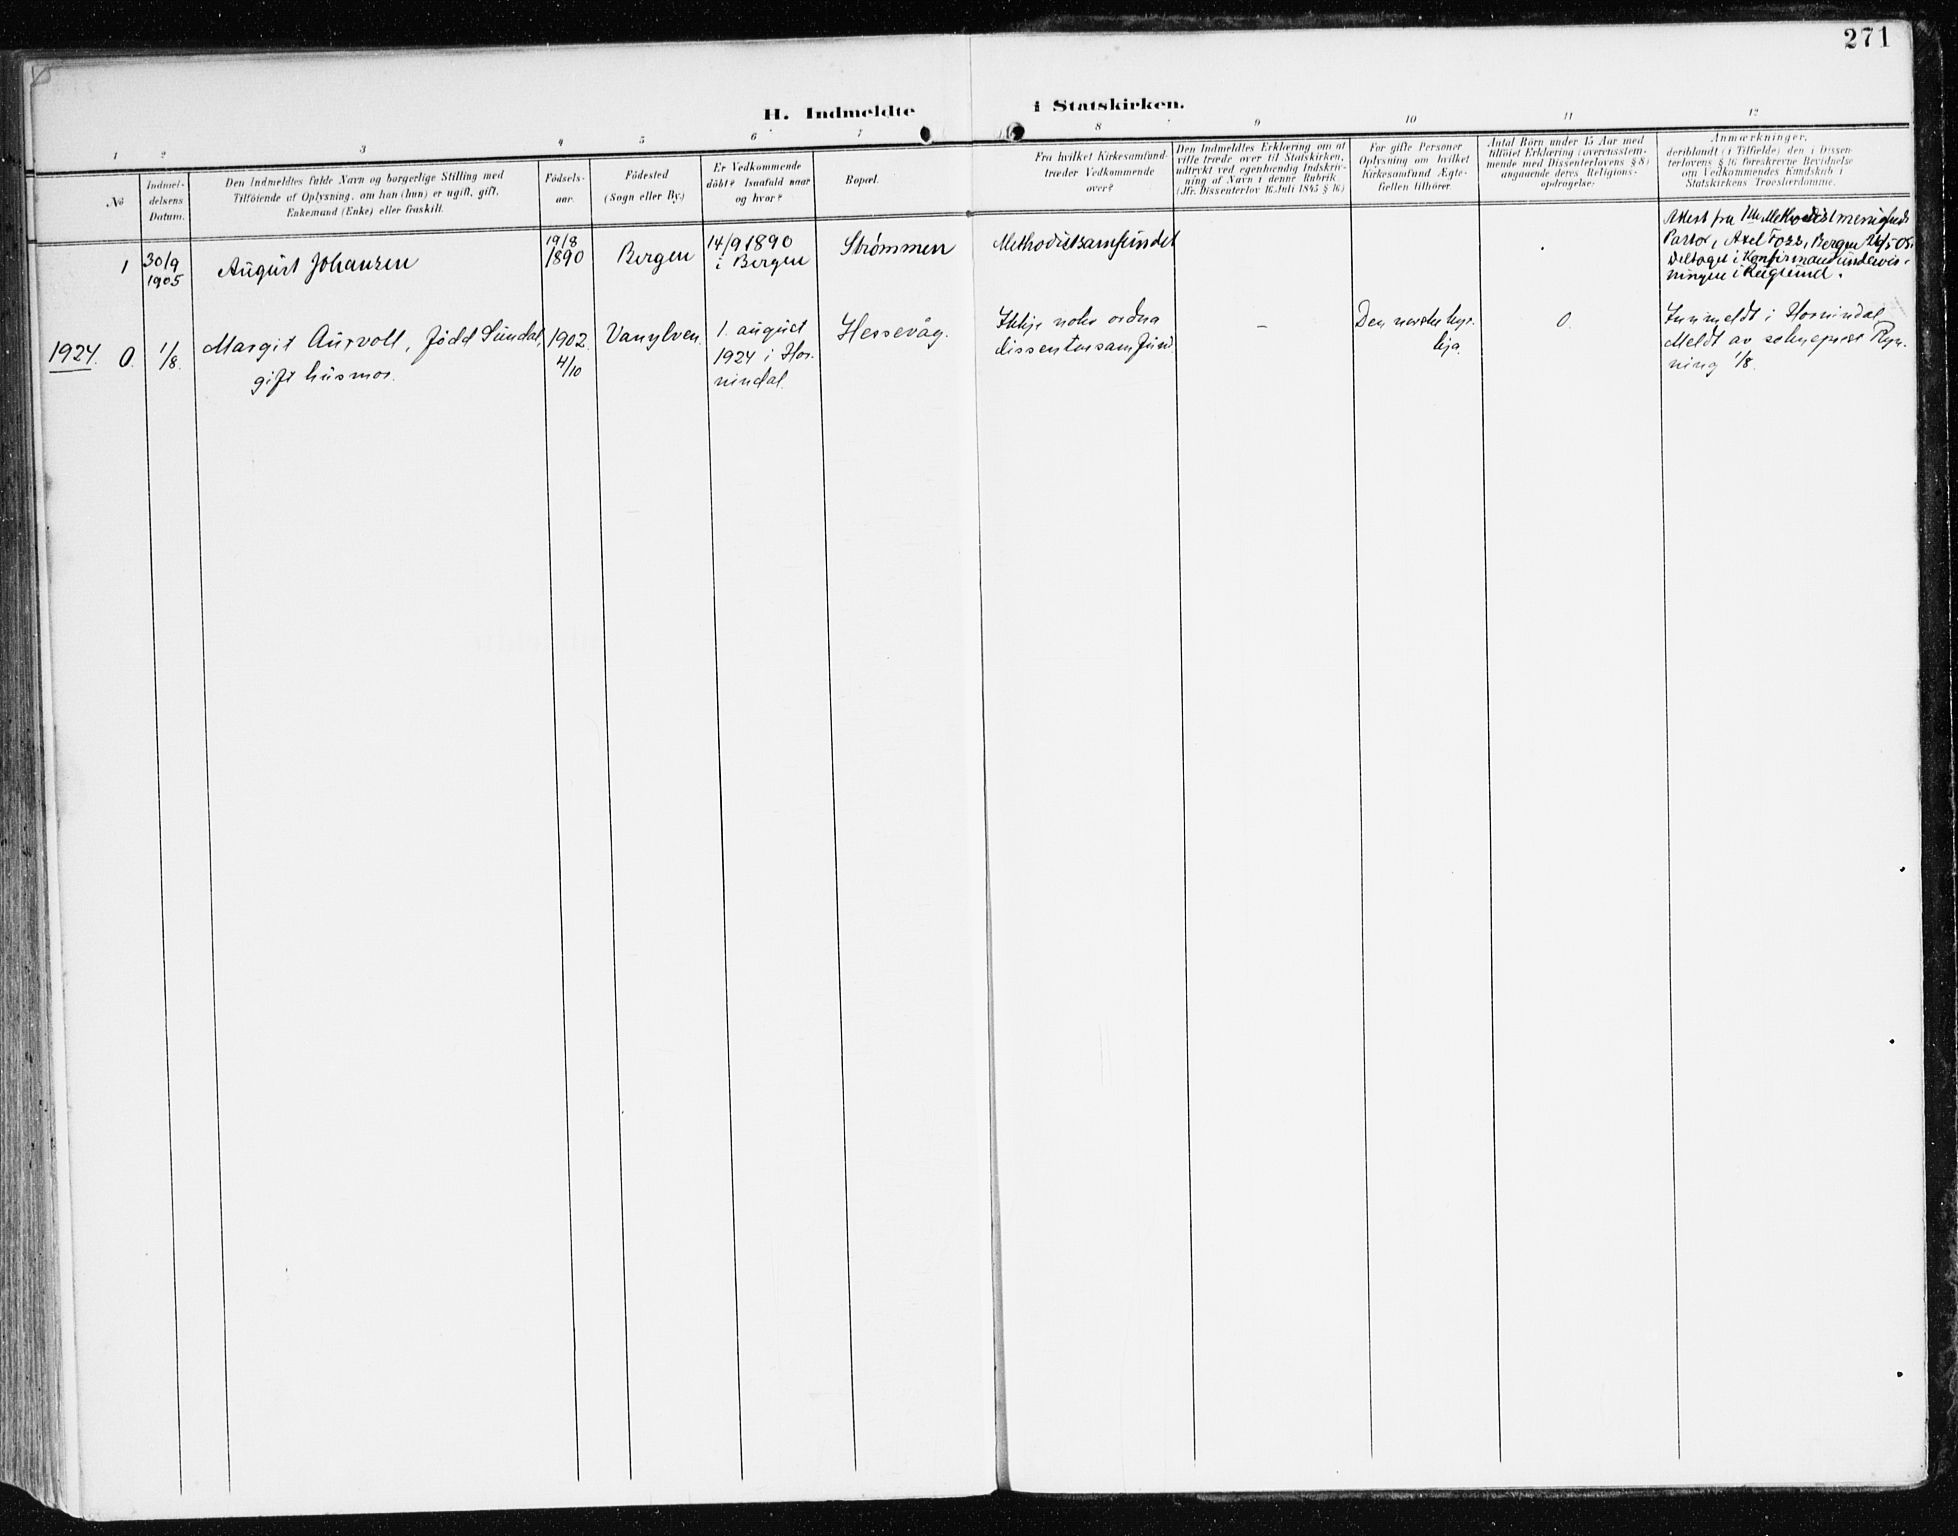 271
H. Indmeldte i Statskirken.
1 2 3 4 5 6 7 8 9 10 11 12
No
Indmel-
delsens
Datum.
Den Indmeldtes fulde Navn og borgerlige Stilling med
Tilföiende af Oplysning, om han (hun) er ugift, gift,
Enkemand (Enke) eller fraskilt.
Födsels-
aar.
Födested
(Sogn eller By.)
Er Vedkommende
döbt? Isaafald naar
og hvor?
Bopæl.
Fra hvilket Kirkesamfund
træder Vedkommende
over?
Den Indmeldtes Erklæring om at
ville træde over til Statskirken,
udtrykt ved egenhændig Indskriv-
ning af Navn i denne Rubrik
(Jfr. Dissenterlov 16 Juli 1845 § 16)
For gifte Personer
Oplysning om hvilket
Kirkesamfund Ægte-
fællen tilhörer.
Antal Börn under 15 Aar med
tilföiet Erklæring (overensstem-
mende med Dissenterlovens § 8)
angaaende deres Religions-
opdragelse.
Anmærkninger,
deriblandt (i Tilfælde) den i Dissen-
terlovens § 16 foreskrevne Bevidnelse
om Vedkommendes Kundskab i
Statskirkens Troeslærdomme.
1
30/9
1905
August Johansen
19/8
1890
Bergen
14/9 1890
i Bergen
Strømmen
Methodistsamfundet
Attest fra Methodistmenigheds
Pastor, Axel Foss, Bergen
Deltaget i Konfirmandundervis-
ningen i
1924. 0.
1/8.
Margit Aurvoll, född Sundal,
gift husmor.
1902.
4/10
Vanylven.
1. august
1924 i Hor-
nindal.
Hessevåg.
Ikkje noko ordna
dissentersamfund.
–
Den norske kyr-
kja.
0.
Innmeldt i Hornindal.
Meldt av sokneprest Ryn-
ning 1/8.